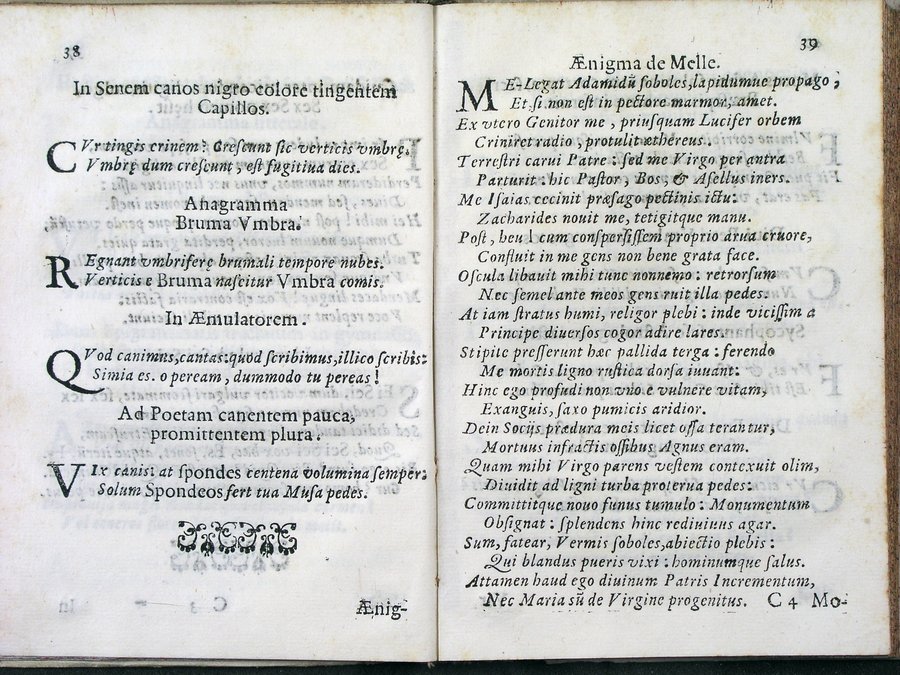 38
In Senem canos nigro colore tingentem
Capillos.
CVr tingis crinem? Crescunt sic verticis vmbrę.
Vmbrę dum crescunt, est fugitiua dies.
Anagramma
Bruma Vmbra.
REgnant vmbriferę brumali tempore nubes:
Verticis e Bruma nascitur Vmbra comis.
In Æmulatorem.
QVod canimus, cantas: quod scribimus, illico scribis:
Simia es. o peream, dummodo tu pereas!
Ad Poetam canentem pauca,
promittentem plura.
VIx canis: at spondes centena volumina semper:
Solum Spondeos fert tua Musa pedes.
Ænig-
39
Ænigma de Melle.
ME-Legat Adamidũ soboles, lapidumue propago;
Et si non est in pectore marmor, amet.
Ex vtero Genitor me, priusquam Lucifer orbem
Criniret radio, protulit æthereus.
Terrestri carui Patre: sed me Virgo per antra
Parturit: hic Pastor, Bos, & Asellus iners.
Me Isaias cecinit præsago pectinis ictu:
Zacharides nouit me, tetigitque manu.
Post, heu! cum conspersissem proprio arua cruore,
Confluit in me gens non bene grata face.
Oscula libauit mihi tunc nonnemo: retrorsum
Nec semel ante meos gens ruit illa pedes.
At iam stratus humi, religor plebi: inde vicissim a
Principe diuersos cogor adire lares.
Stipite presserunt hæc pallida terga: ferendo
Me mortis ligno rustica dorsa iuuant:
Hinc ego profudi non vno e vulnere vitam,
Exanguis, saxo pumicis aridior.
Dein Socijs prædura meis licet ossa terantur,
Mortuus infractis ossibus Agnus eram.
Quam mihi Virgo parens vestem contexuit olim,
Diuidit ad ligni turba proterua pedes:
Committitque nouo funus tumulo: Monumentum
Obsignat: splendens hinc rediuiuus agar.
Sum, fatear, Vermis soboles, abiectio plebis:
Qui blandus pueris vixi: hominumque salus.
Attamen haud ego diuinum Patris Incrementum,
Nec Maria sũ de Virgine progenitus. C 4 Mo-